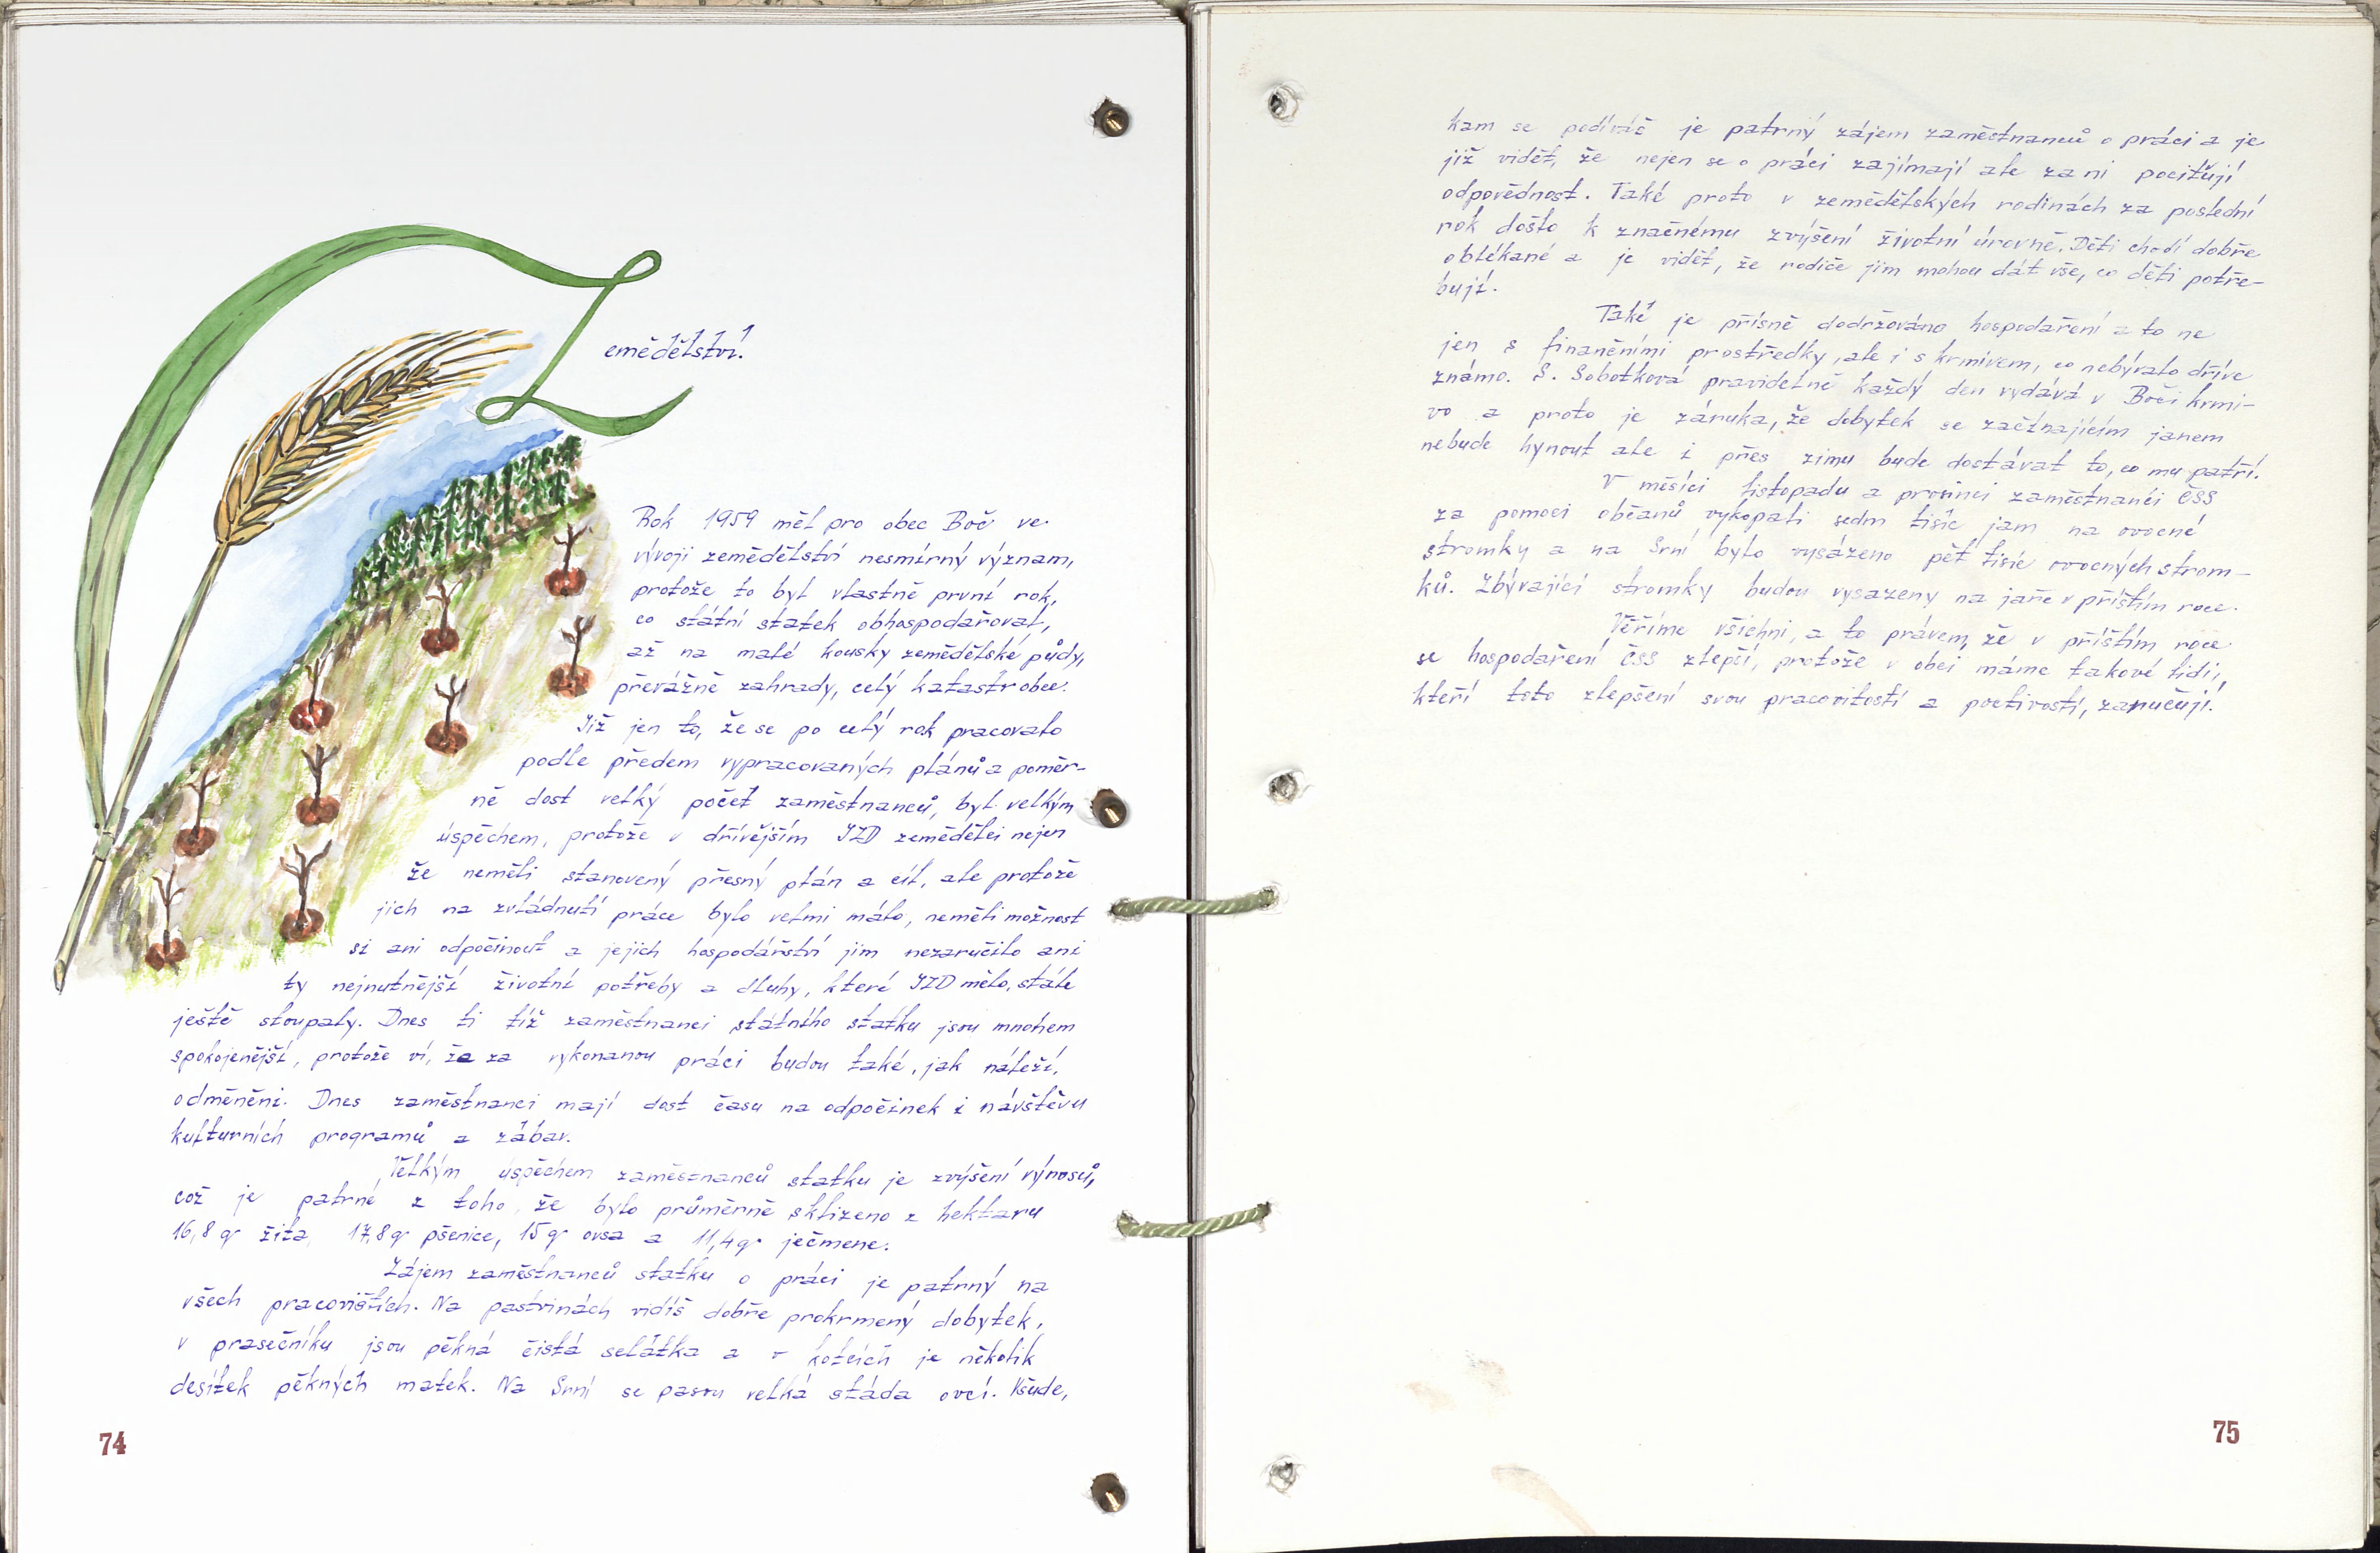 Zemědělství.
Rok 1959 měl pro obec Boč ve
vývoji zemědělství nesmírný význam,
protože to byl vlastně první rok,
co státní statek obhospodařoval,
až na malé kousky zemědělské půdy,
převážně zahrady, celý katastr obce.
Již jen to, že se po celý rok pracovalo
podle předem vypracovaných plánů a poměr-
ně dost velký počet zaměstnanců, byl velkým
úspěchem, protože v dřívějším JZD zemědělci nejen
že neměli stanovený přesný plán a cíl, ale protože
jich na zvládnutí práce bylo velmi málo, neměli možnost
si ani odpočinout a jejich hospodářství jim nezaručilo ani
ty nejnutnější životní potřeby a dluhy, které JZD mělo, stále
ještě stoupaly. Dnes ti tíž zaměstnanci státního statku jsou mnohem
spokojenější, protože ví, že za vykonanou práci budou také, jak náleží,
odměněni. Dnes zaměstnanci mají dost času na odpočinek i návštěvu
kulturních programů a zábav.
Velkým úspěchem zaměstnanců statku je zvýšení výnosů,
což je patrné z toho, že bylo průměrně sklizeno z hektaru
16,8 q žita, 17,8 q pšenice, 15 q ovsa a 11,4 q ječmene.
Zájem zaměstnanců statku o práci je patrný na
všech pracovištích. Na pastvinách vidíš dobře prokrmený dobytek,
v prasečníku jsou pěkná čistá selátka a v kotcích je několik
desítek pěkných matek. Na Srní se pasou velká stáda ovcí. Všude,
74
kam se podíváš je patrný zájem zaměstnanců o práci a je
již vidět, že nejen se o práci zajímají ale za ni pociťují
odpovědnost. Také proto v zemědělských rodinách za poslední
rok došlo k značnému zvýšení životní úrovně. Děti chodí dobře
oblékané a je vidět, že rodiče jim mohou dát vše, co děti potře-
bují.
Také je přísně dodržováno hospodaření a to ne
jen s finančními prostředky, ale i s krmivem, co nebývalo dříve
známo. S. Sobotková pravidelně každý den vydává v Boči krmi-
vo a proto je záruka, že dobytek se začínajícím janem
nebude hynout ale i přes zimu bude dostávat to, co mu patří.
V měsíci listopadu a prosinci zaměstnanci ČSS
za pomoci občanů vykopali sedm tisíc jam na ovocné
stromky a na Srní bylo vysázeno pět tisíc ovocných strom-
ků. Zbývající stromky budou vysazeny na jaře v příštím roce.
Věříme všichni, a to právem, že v příštím roce
se hospodaření ČSS zlepší, protože v obci máme takové lidi,
kteří toto zlepšení svou pracovitostí a poctivostí, zaručují.
75